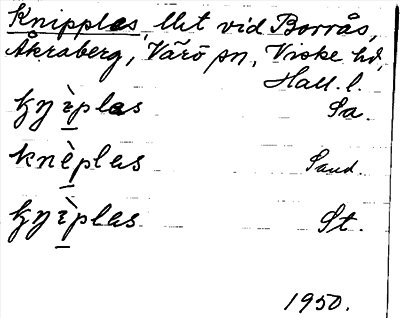 Knipplas, llet vid Borrås,
Åkraberg, Värö sn, Viske hd,
Hall. l.
knìplas Sa.
knèplas Sand.
knìplas St.
1950.